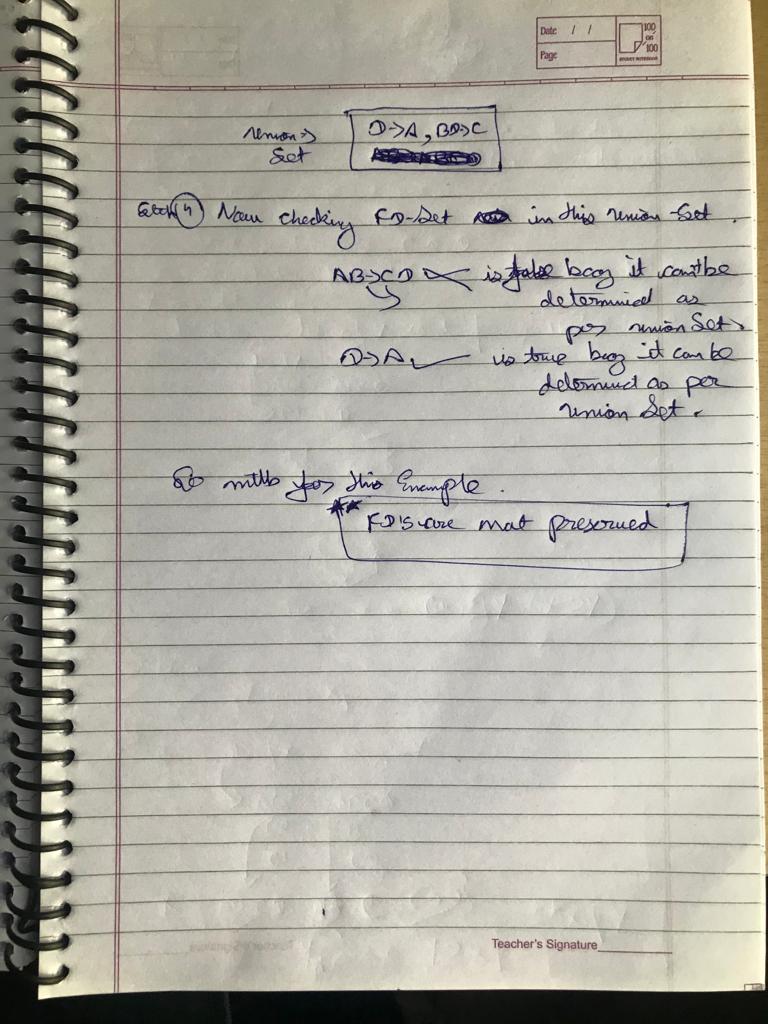 Date / /
100 on 100
Page
union → D→A, BD→C
Set
Step 4 Now checking FD-Set in this union-Set.
AB→CD ✗ is false bcoz it can't be
determined as
per union Set.
D→A ✓ is true bcoz it can be
determined as per
union Set.
So for this Example.
** FD's are not preserved
Teacher's Signature